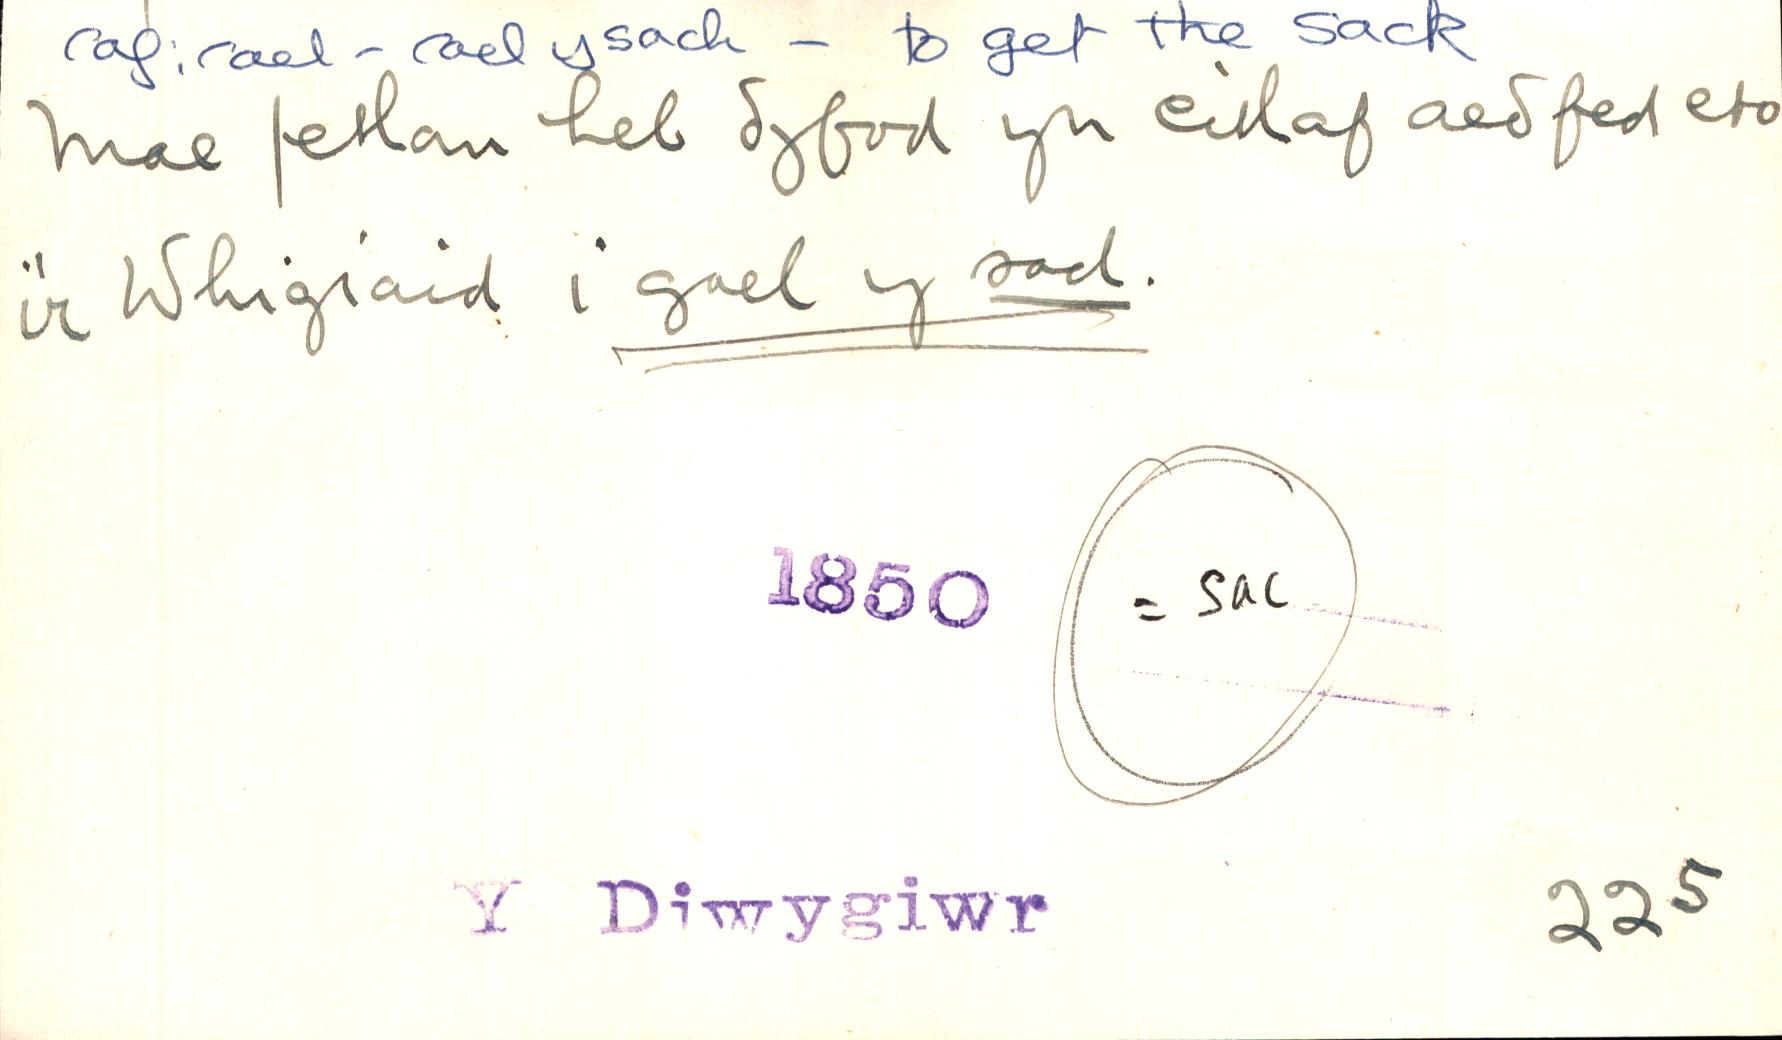 caf: cael - cael y sach - to get the sack
Mae pethau heb ddyfod yn eithaf aeddfed eto
i'r Whigiaid i gael y sach.
1850
= sac
Y Diwygiwr
225